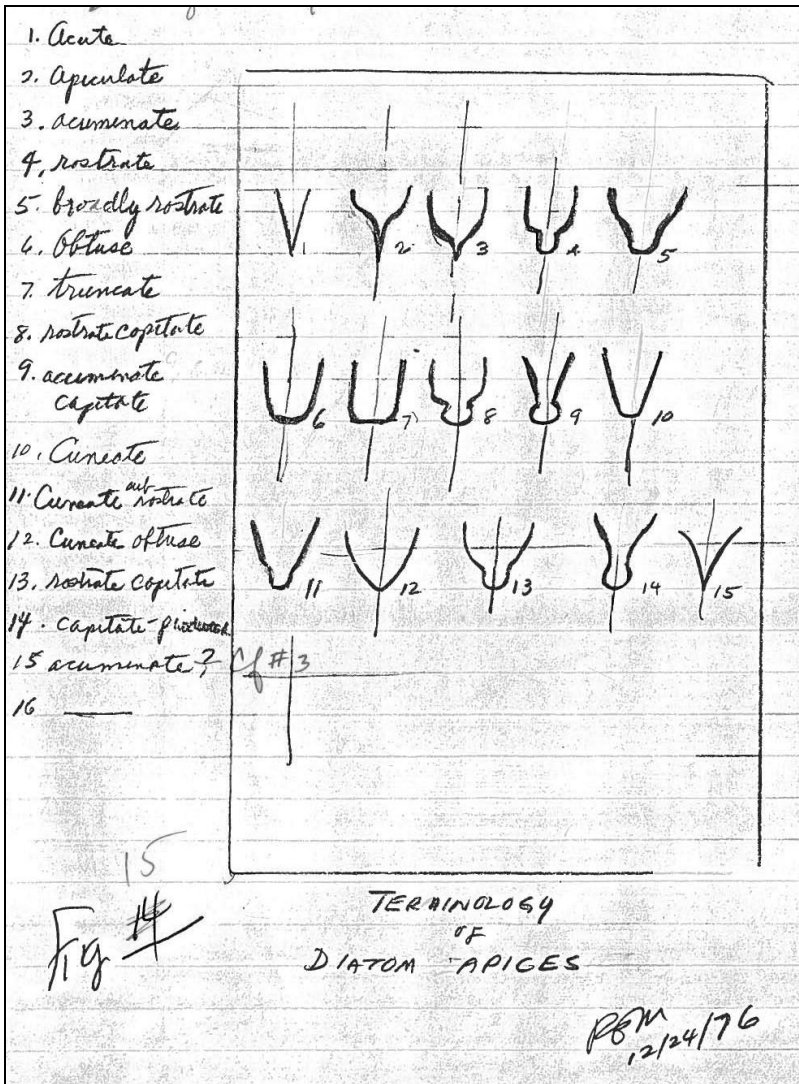 1. Acute
2. Apiculate
3. acuminate
4. rostrate
5. broadly rostrate
6. Obtuse
7. truncate
8. rostrate capitate
9. acuminate
capitate
10. Cuneate
11. Cuneate sub rostrate
12. Cuneate obtuse
13. rostrate capitate
14. capitate-
15 acuminate? Cf #3
16
1 2 3 4 5
6 7 8 9 10
11 12 13 14 15
15
Fig 14
TERMINOLOGY
OF
DIATOM APICES
12/24/76